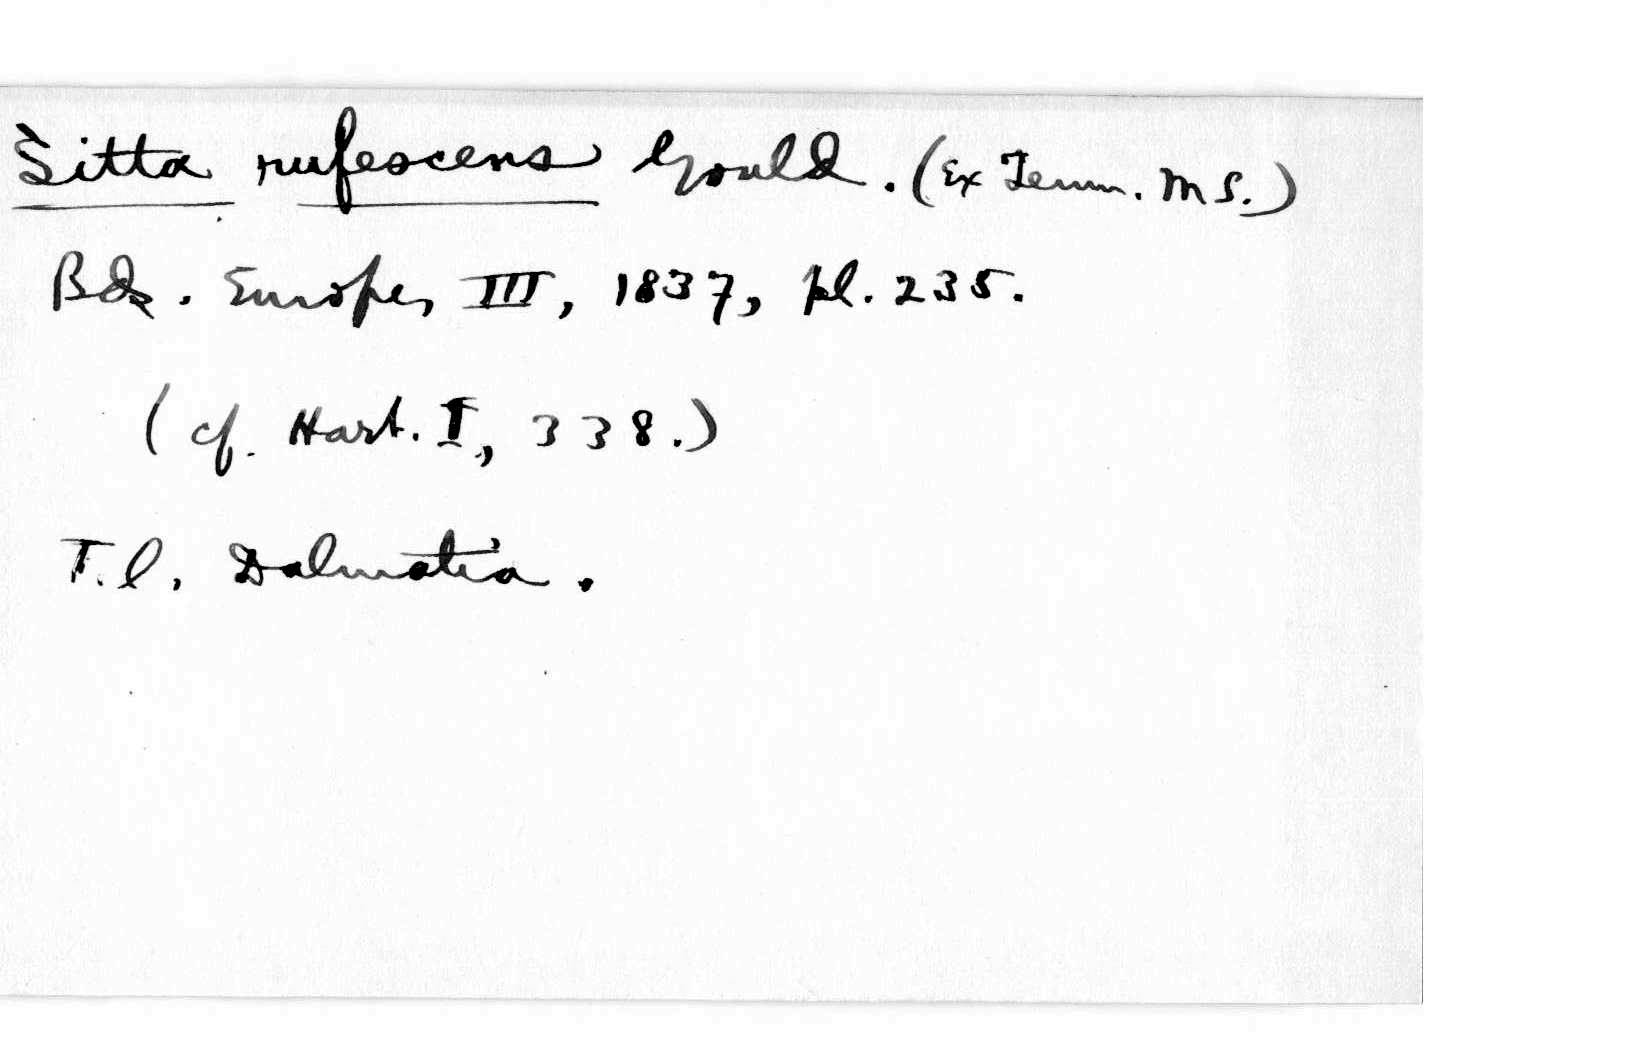 Sitta rufescens Gould. (Ex Temm. MS.)
Bds. Europe, III, 1837, pl. 235.
(cf. Hart. I, 338.)
T.l. Dalmatia.